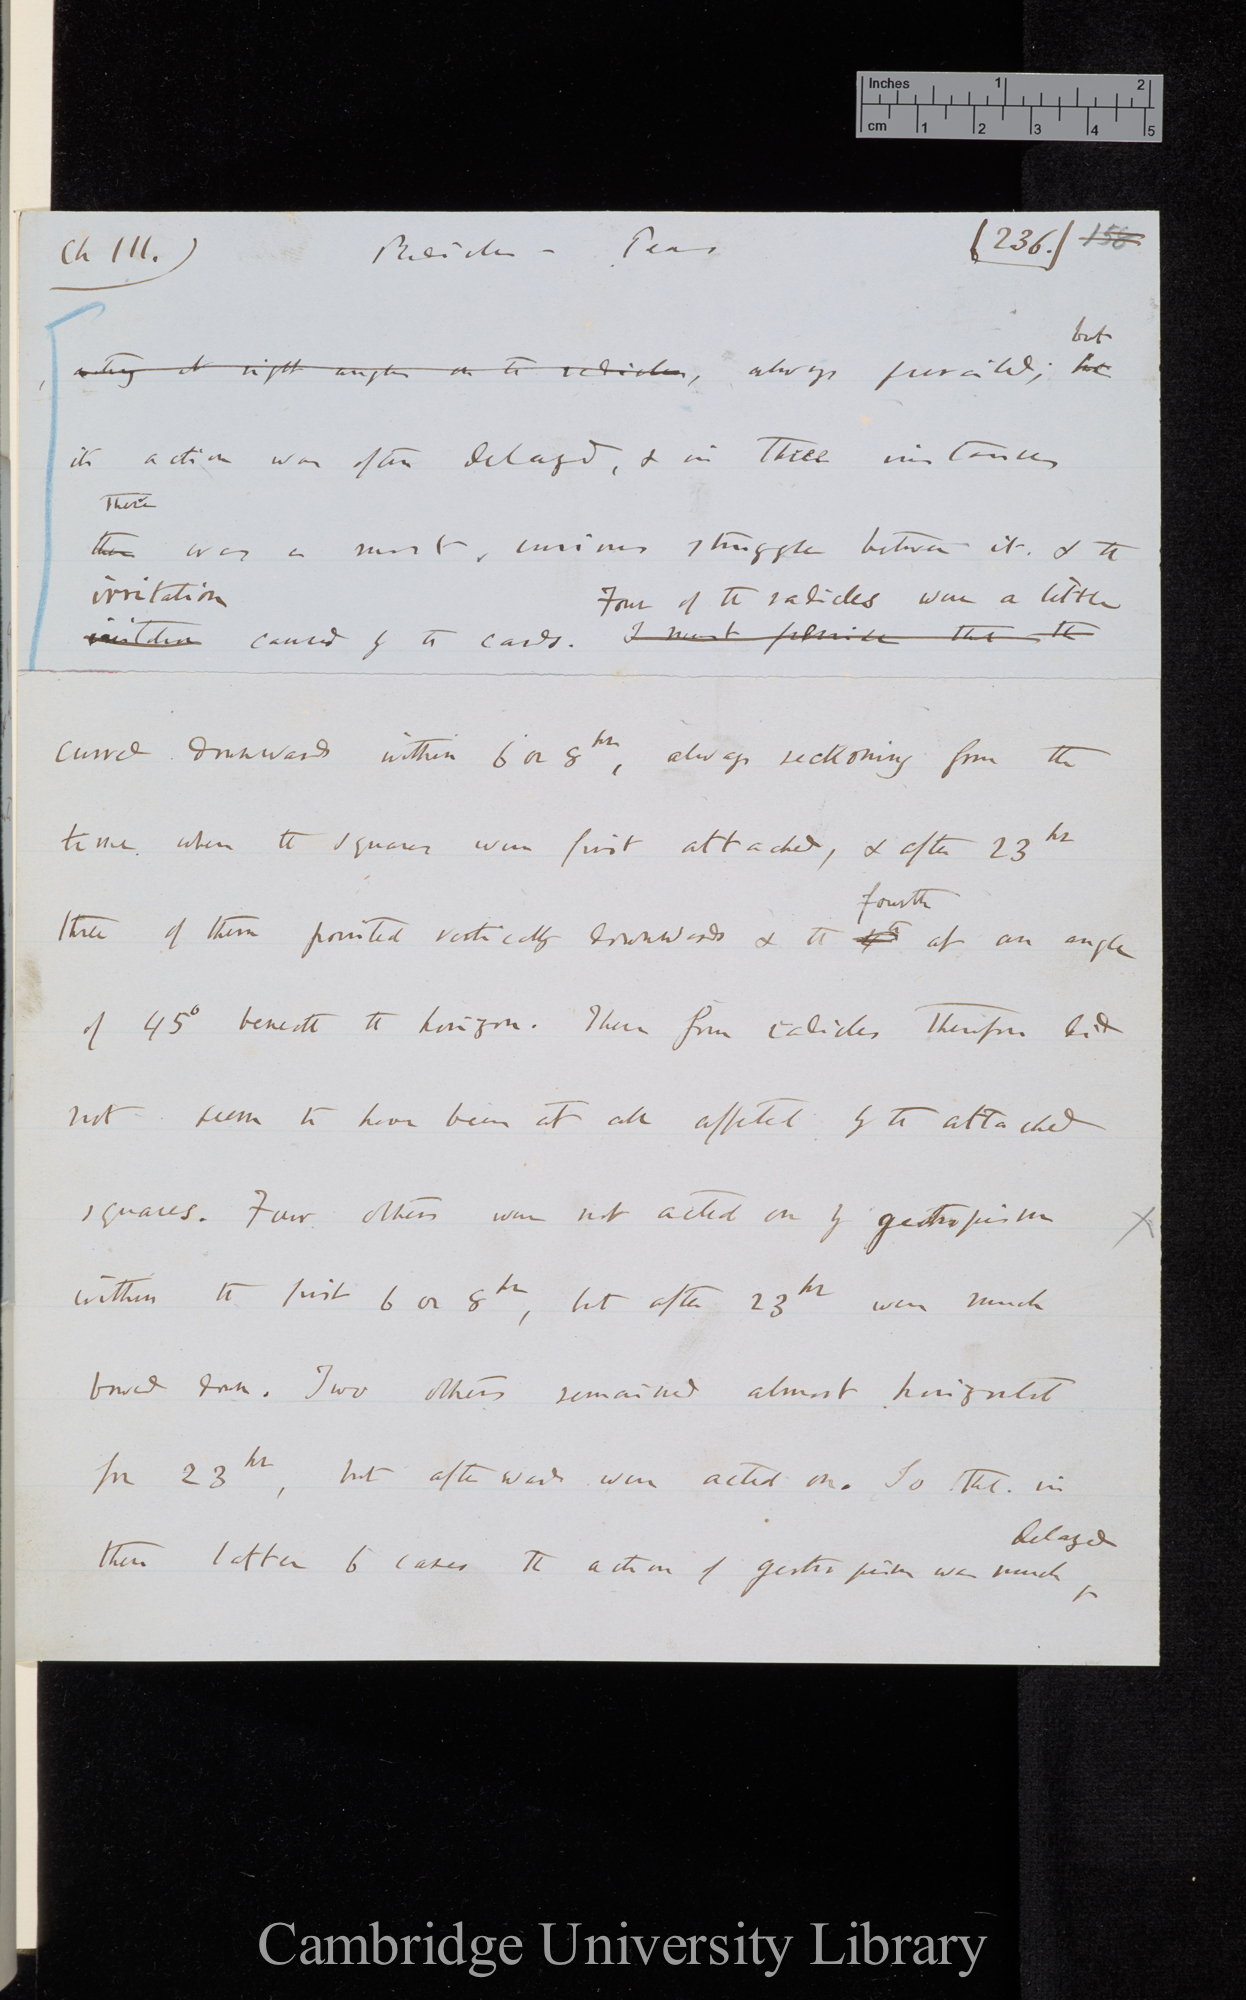 Inches 1 2
cm 1 2 3 4 5
Ch III.) Radicles – Peas (236.) 156
but
, acting at right angles on the radicles, always prevailed; but
its action was often delayed, & in three instances
There
there was a most curious struggle between it & the
irritation Four of the radicles were a little
irritation caused by the cards. I must premise that the
curved downwards within 6 or 8 hrs, always reckoning from the
time when the squares were first attached, & after 23 hr
fourth
three of them pointed vertically downwards & the 4th at an angle
of 45° beneath the horizon. These four radicles therefore did
not seem to have been at all affected by the attached
squares. Four others were not acted on by geotropism X
within the first 6 or 8 hr, but after 23 hr were much
bowed down. Two others remained almost horizontal
for 23 hr, but afterwards were acted on. So that in
delayed
these latter 6 cases the action of geotropism was much
Cambridge University Library